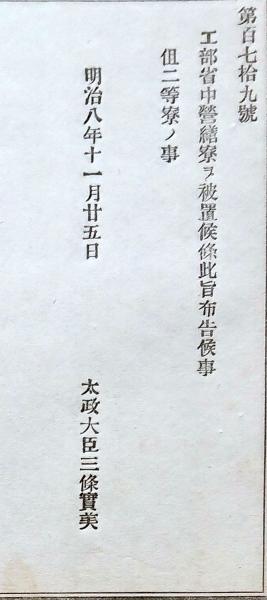 第百七拾九號
工部省中營繕寮ヲ被置候條此旨布告候事
但二等寮ノ事
明治八年十一月廿五日
太政大臣三條實美